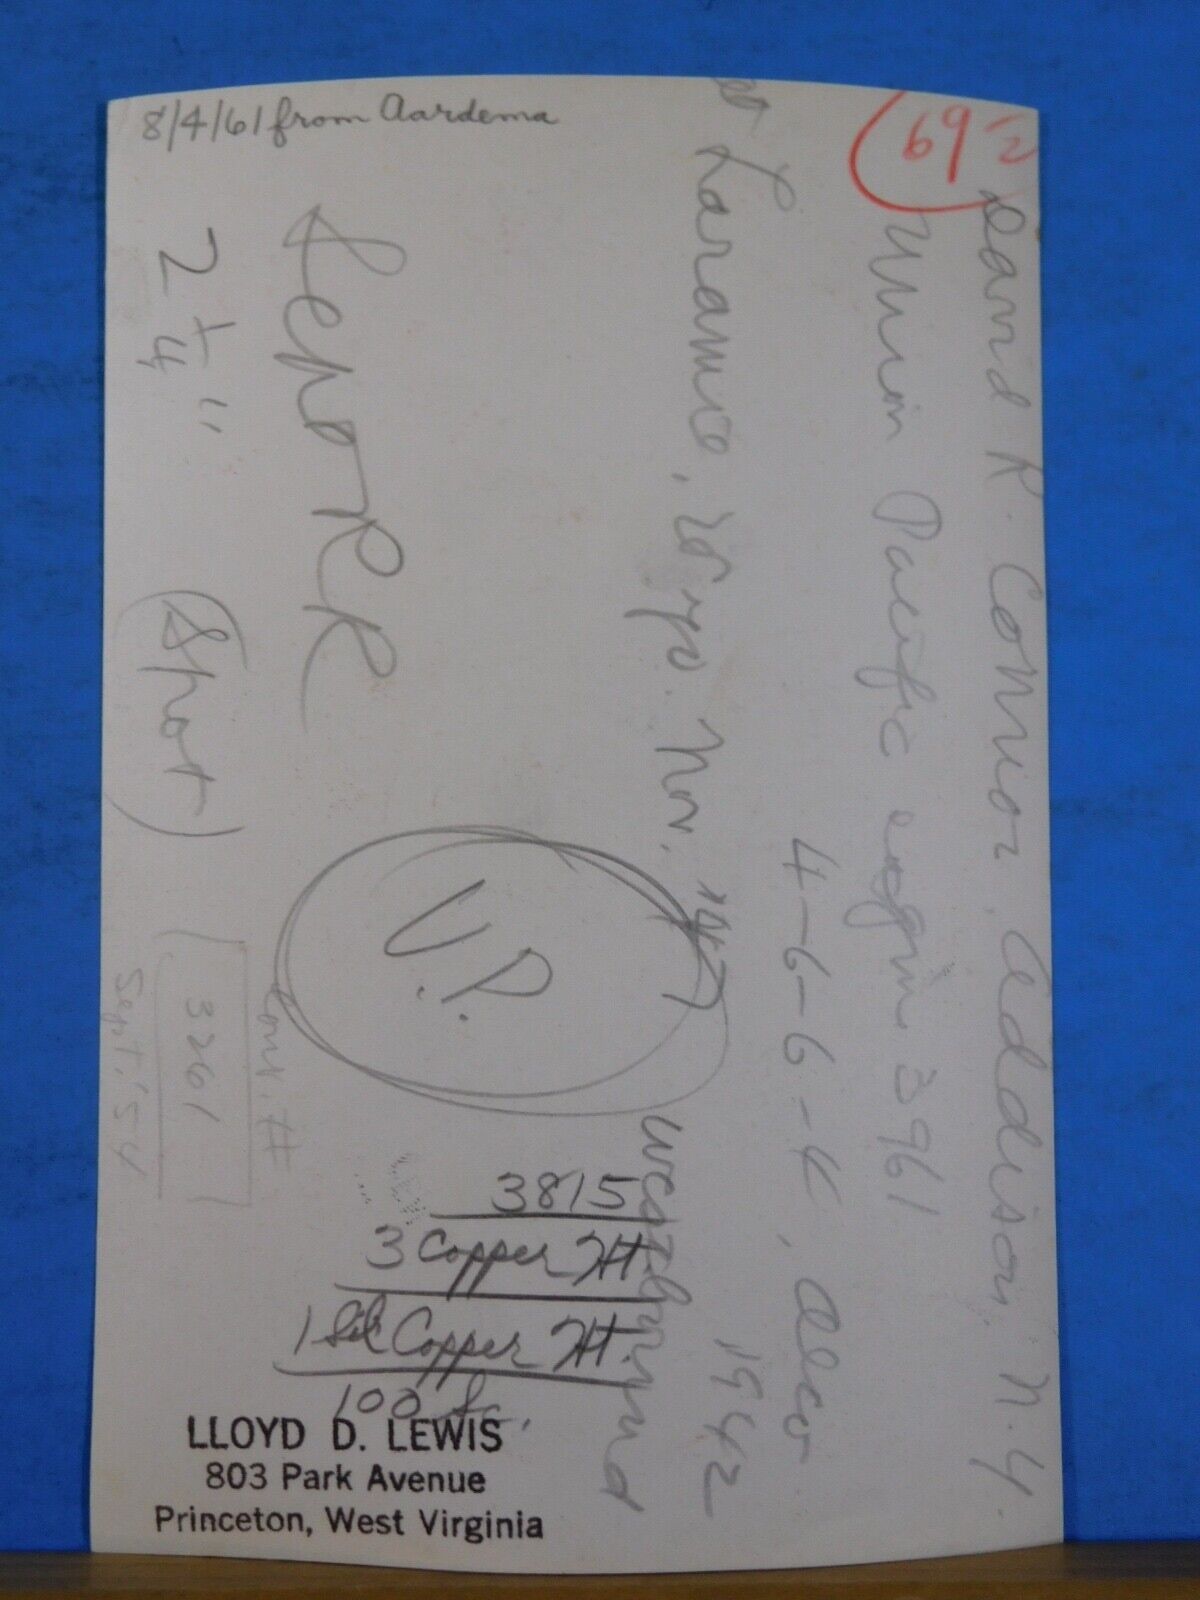 8/4/61 from Aardema
69
David R. Connor, Addison, N.Y.
Union Pacific engin 3961
4-6-6-4, Alco 1942
at Laramie, Wyo. Nov. '47
westbound
SepoRR
2 1/4" (Spot)
U.P.
#
3261
Sept. '54
3815
3 Copper Ht.
1 Sil Copper Ht.
100
LLOYD D. LEWIS
803 Park Avenue
Princeton, West Virginia